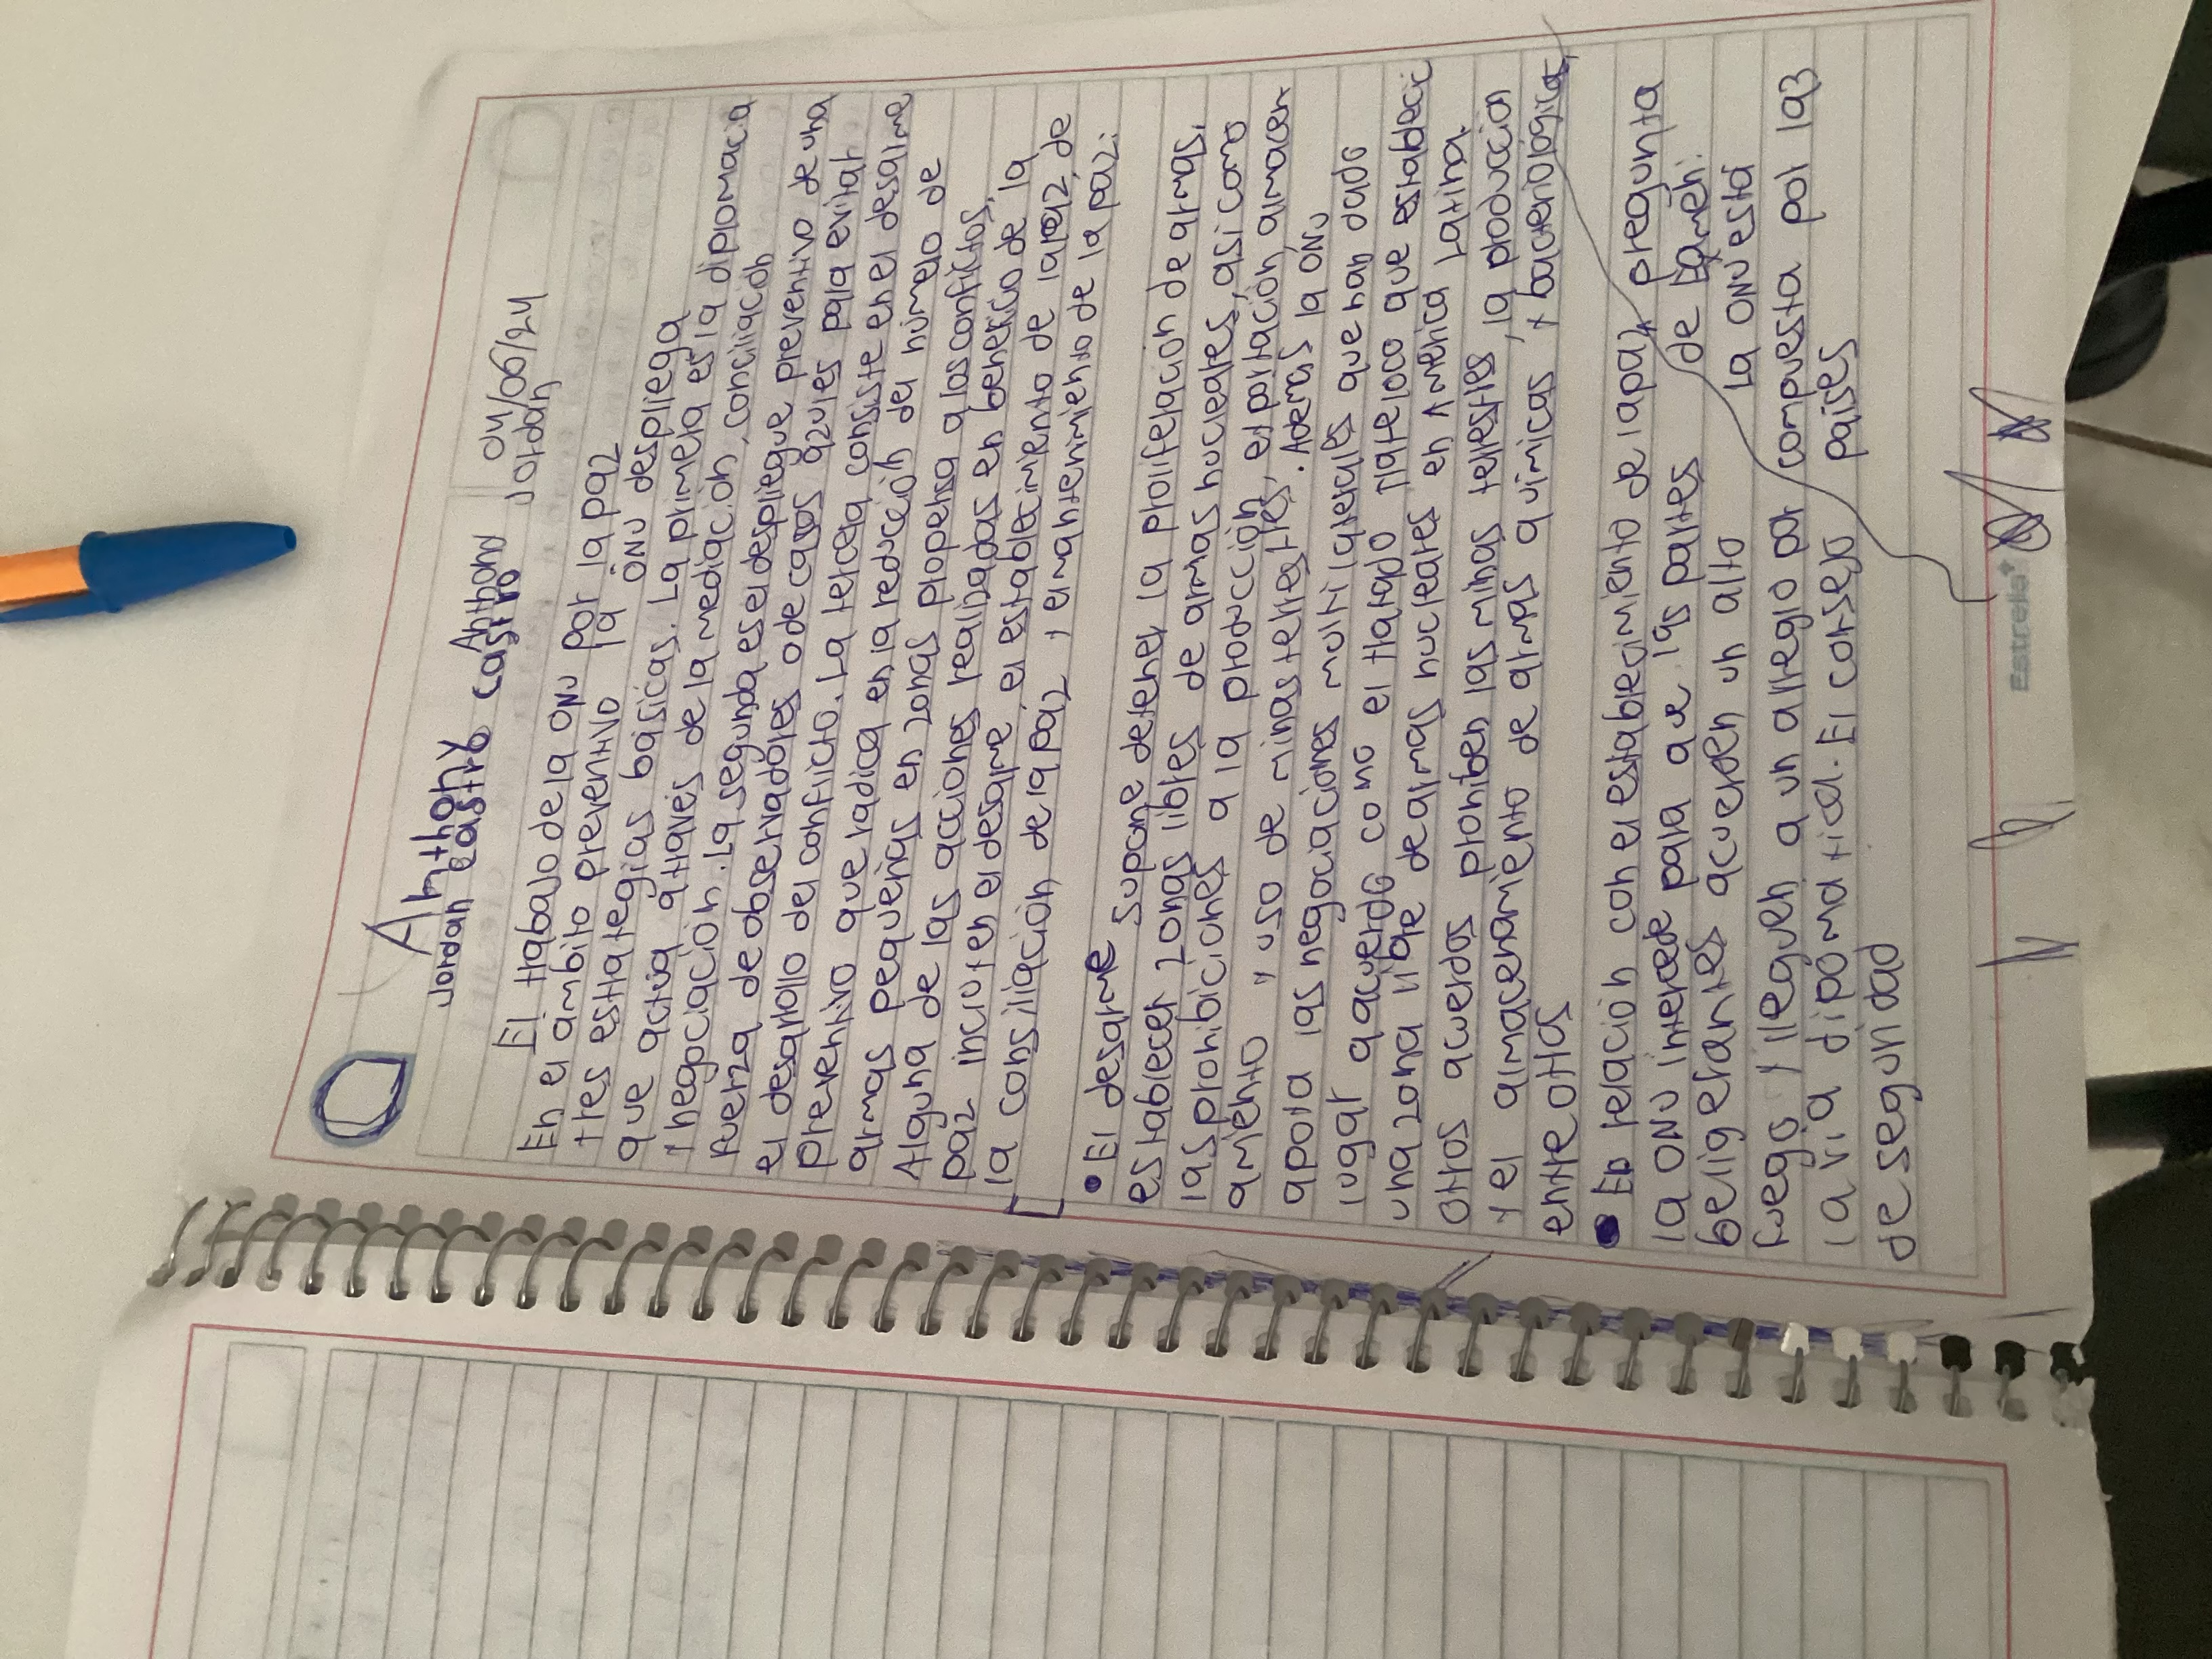 Anthony
Jordan castro
Anthony
castro
04/06/24
Jordan
El trabajo de la ONU por la paz
En el ambito preventivo la ONU despliega
tres estrategias básicas. La primera es la diplomacia
que actúa através de la mediación, conciliacion
y negociación. La segunda es el despliegue preventivo de una
fuerza de observadores o de cascos azules para evitar
el desarrollo del conflicto. La tercera consiste en el desarme
preventivo que radica en la reducción del número de
armas pequeñas en zonas propensa a los conflictos.
Alguna de las acciones realizadas en beneficio de la
paz incluyen el desarme, el establecimiento de la paz, de
la consiliacion de la paz y el mantenimiento de la paz:
• El desarme supone detener la proliferacion de armas,
establecer zonas libres de armas nucleares, asi como
las prohibiciones a la producción, explotación, almacen
amiento y uso de minas terrestres. Además, la ONU
apoya las negociaciones multilaterales que han dado
lugar a acuerdo como el tratado Tlatelolco que establecí
una zona libre de armas nucleares en America Latina.
Otros acuerdos prohiben las minas terrestres, la produccion
y el almacenamiento de armas quimicas y bacteriológica,
entre otras
• En relación con el establecimiento de la paz,
la ONU intercede para que las partes
beligerantes acuerden un alto
fuego y lleguen a un arreglo por
la via dipomatica. El consejo
de seguridad
pregunta
de Examen:
La ONU está
compuesta por 193
países
Estrella